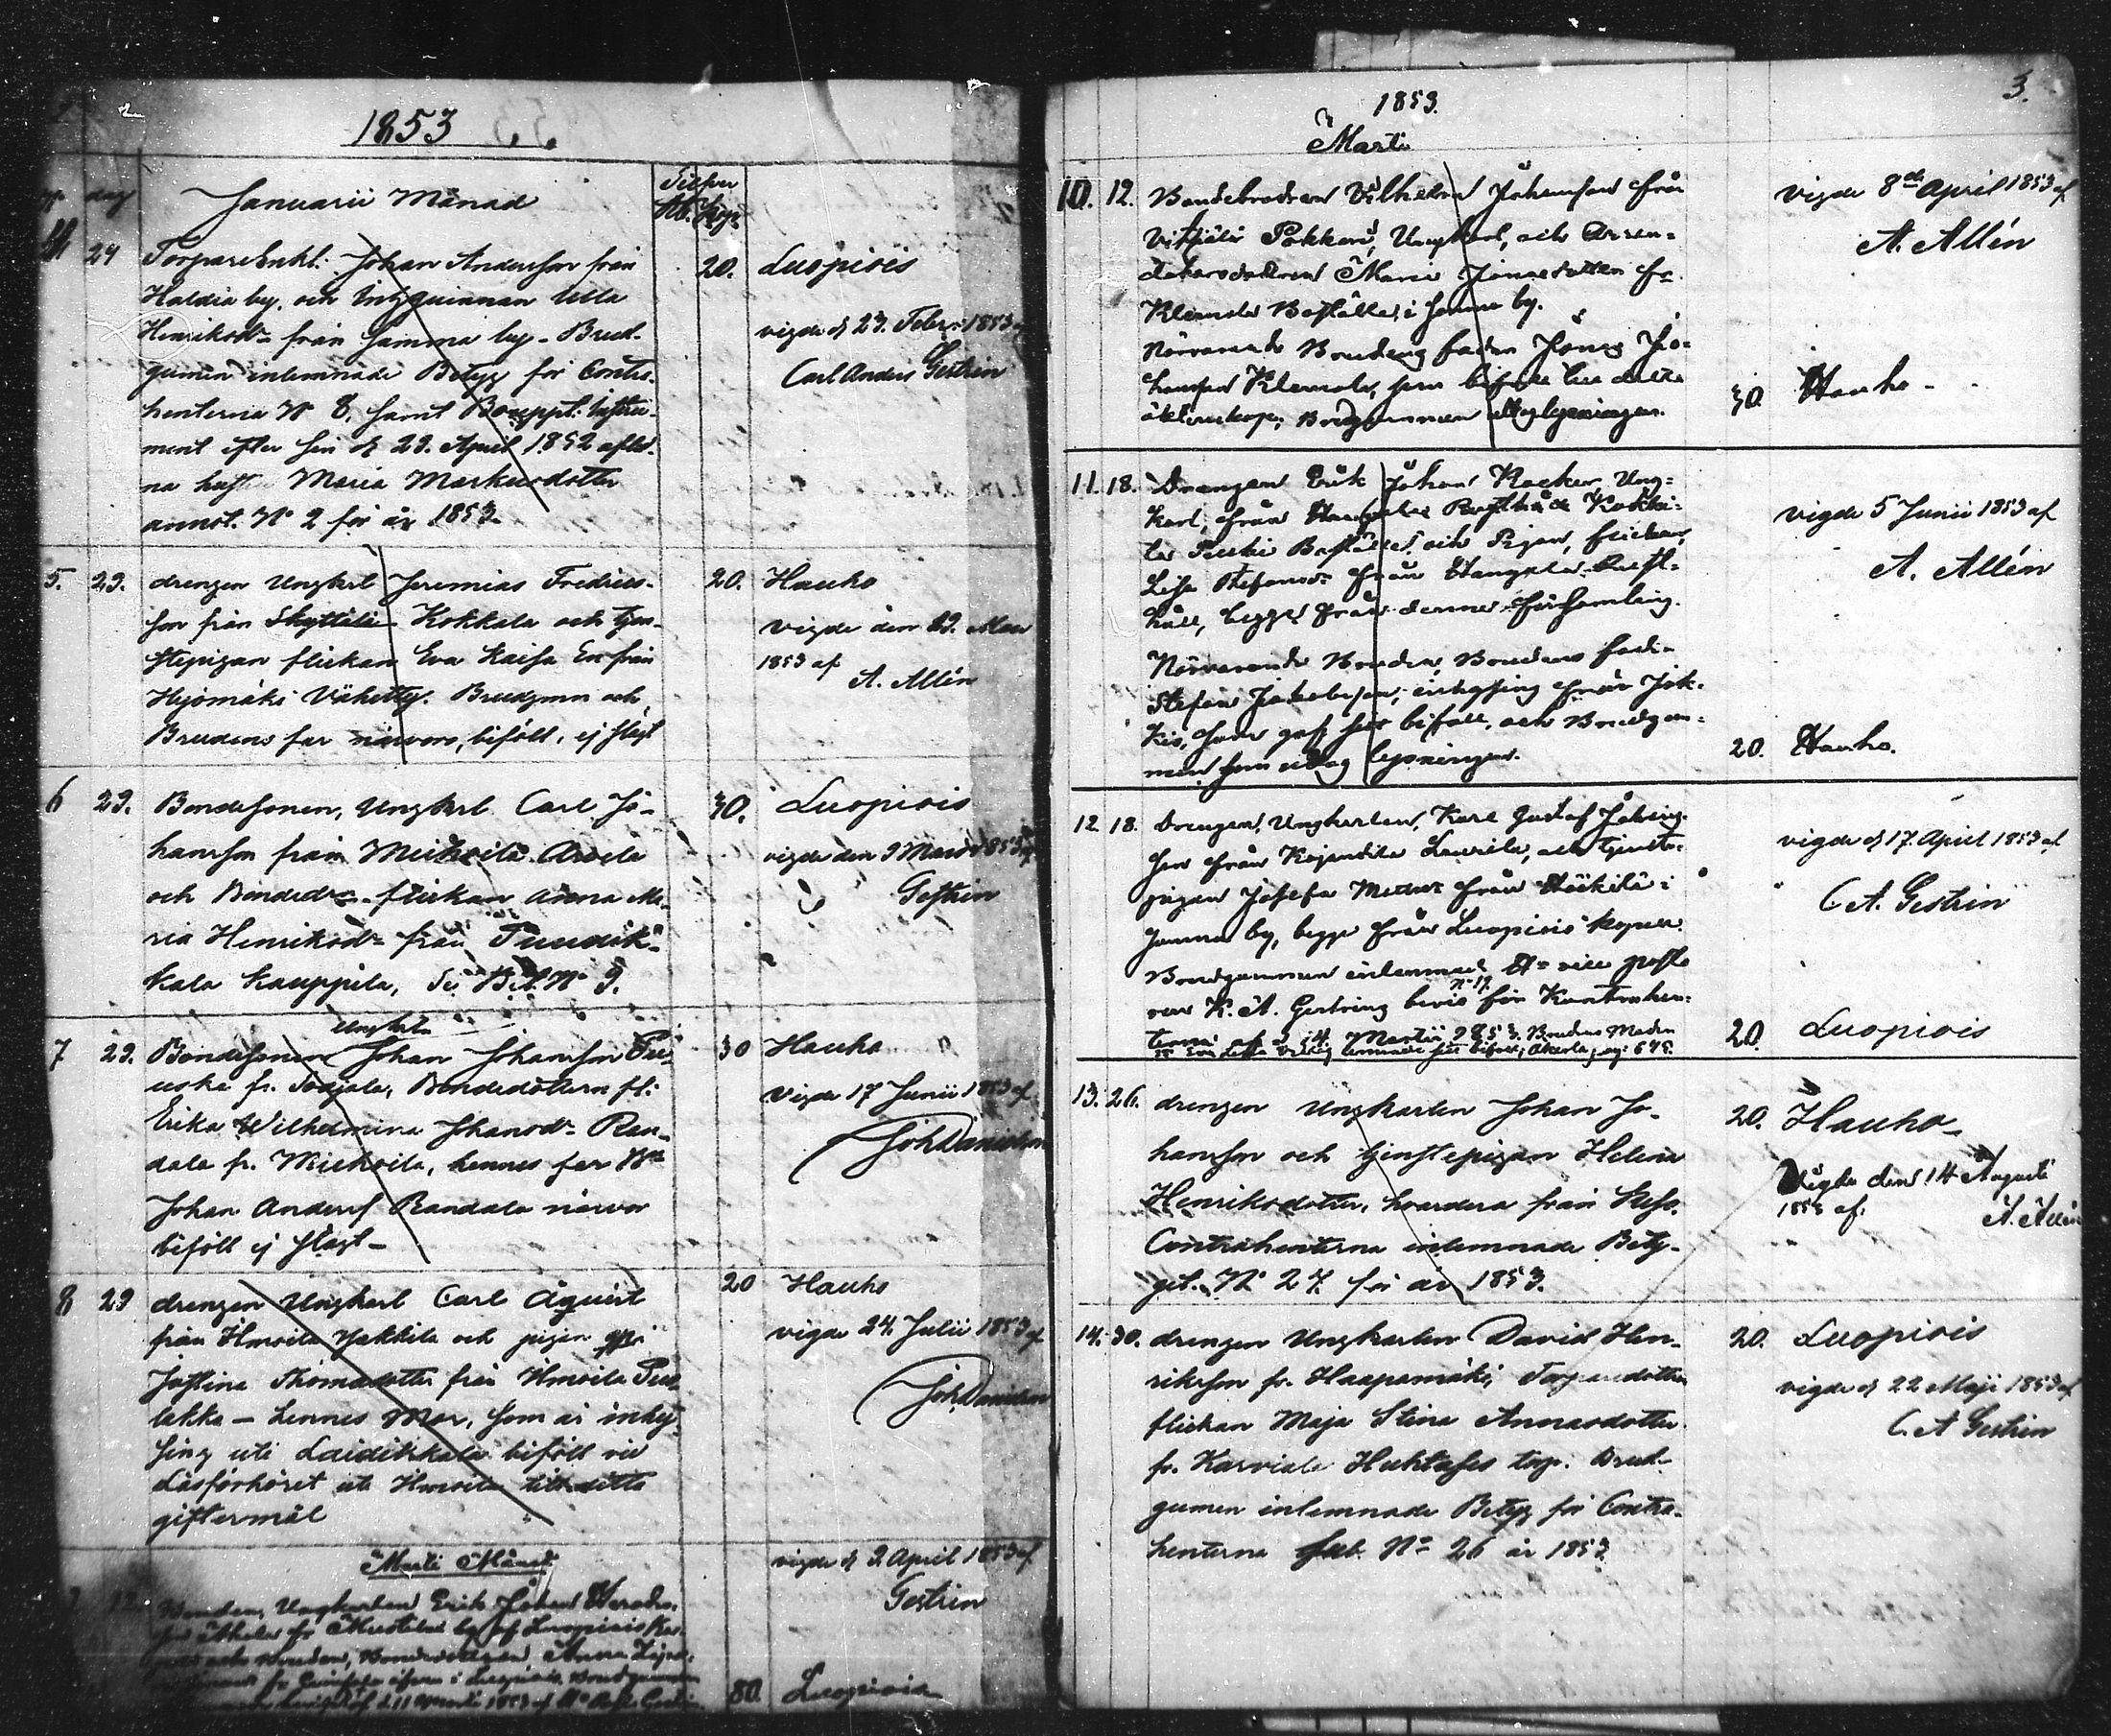 1853
Januarii Månad
dag
Silfver
Rb. Kop.
24 Torpare Enkl. Johan Andersson från
Haldia by, och Inhysquinnan Ulla
Henriksdr från samma by - Brud-
gumen inlemnade Betyg för Contra-
henterna No 8, samt Bouppt. Instru-
ment efter sin d 23. April 1852 aflid-
na hustru Maria Markusdotter
annot. No 2 för år 1853.
20. Luopiois
vigde d 23. Febr. 1853 af
Carl Anders Gestrin
5. 23. drengen Ungkarl Jeremias Fredrics-
son från Skyttälä Kokkala och tjen-
stepigan flickan Eva Kaisa fr från
Hyömäki Vähetty. Brudgumn och
Brudens far närvoro, biföll, ej slägt
20. Hauho
Vigde den 29. Mars
1853 af
A. Allén
6 23. Bondesonen, Ungkarl Carl Jo-
hansson från Miehoila Arvela
och Bondedr flickan Anna Ma-
ria Henriksdr från Puutik-
kala Kauppila, Se Bil. No 9.
30. Luopiois
vigde den 9 Mars 1853 af
Gestrin
7 23. Bondesonen Ungkarl Johan Johansson Pu-
uska fr. Sotjala, Bondedottern fl:
Erika Wilhelmina Johansdr Ran-
dala fr. Miehoila, hennes far Bn
Johan Anderss Randala närvar
biföll ej slägt -
30 Hauho
Vigde 17 Junii 1853 af
Joh Danielson
8 23 drengen Ungkarl Carl Åqvist
från Hmoila Yskkila och pigan
Justina Thomasdotter från Hmoila Pul-
lakka - hennes Mor, som är inhy-
sing uti Luidikkala biföll vid
Läsförhöret uti Hmoila till detta
giftermål
20 Hauho
vigde 24. Julii 1853 af
Joh Danielson
Marti Månad
12. Bonden, Ungkarlen Erik Johan
fr Mustila by af Luopiois Ka-
pell och Anna
d. 11 Martii 1853 af
vigde d 2 April 1853 af
Gestrin
30. Luopiois
3.
1853.
Marti
10. 12. Bondebrodren Vilhelm Johansson från
Vitsiälä Pokkari, Ungkarl, och Arren-
datorsdottren Maria Jonasdotter fr
Klemola Boställe, i samma by.
Närvarande Brudens fader Jonas Jo-
hansson Klemola, som biföll till detta
äktenskap, Brudgummen uttog lysningen.
30. Hauho -
vigde 8de April 1853 af
A. Allén
11. 18. Drengen Erik Johan Racker, Ung-
karl, från Rusthåll Kokki-
la Puski Bostället, och Pigan, flickan,
Lisa Stefansdr från Rust-
håll, begge från denna församling.
Närvarande Brudens fader
Stefan Jakobsson, inhysing från Jok-
kis, som gaf sitt bifall, och Brudgum-
men som uttog lysningen.
20. Hauho.
vigde 5 Junii 1853 af
A. Allén
12 18. Drengen, Ungkarlen, Karl Gustaf
son från Kajandila Laurila, och tjenste-
pigan Josefa från Häikilä i
samma by, begge från Luopiois kapell.
Brudgummen inlemnade Hr vice pasto-
ren K. A. Gestrins bevis No 17 för Kontrahen-
terna af d. 14. Martii 1853. Brudens Moder
20. Luopiois
vigde d 17. April 1853 af
C. A. Gestrin
13. 26. drengen Ungkarlen Johan Jo-
hansson och tjenstepigan Helena
Henriksdotter, hvardera från Kuhs.
Contrahenterna inlemnade Bety-
get. No 27. för år 1853.
20. Hauho
Vigde den 14 Augusti
1853 af.
A. Allén
14. 30. drengen Ungkarlen David Hen-
riksson fr. Haapamäki, Torparedottern
flickan Maja Stina Annasdotter
fr. Karviala Huhtahes torp. Brud-
gumen inlemnade Betyg för Contra-
henterna sub. No 26 år 1853
20. Luopiois
vigde d 22 Maji 1853 af
C. A Gestrin